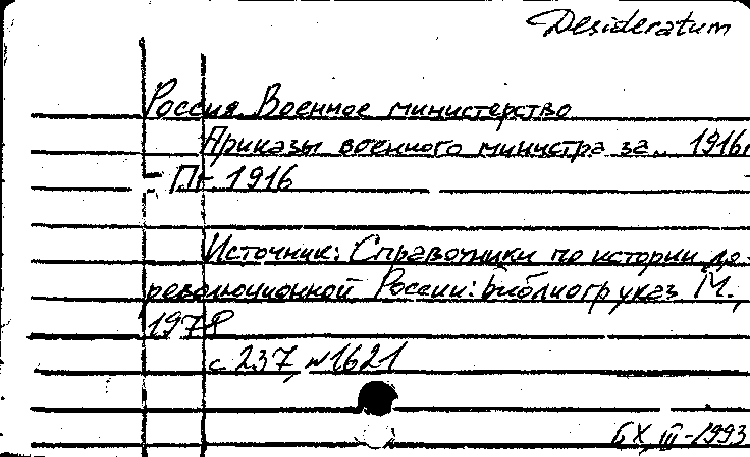 Desideratum
Россия. Военное министерство
Приказы военного министра за.. 1916г
- Пг. 1916
Источник: Справочники по истории до-
революционной России: библиогр указ М.,
1978
с 237, №1621
БХ, III-1993